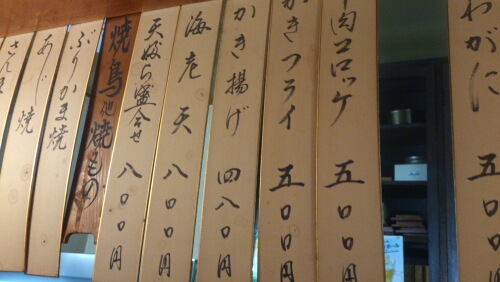 わがに
牛肉コロッケ 五〇〇円
かきフライ 五〇〇円
かき揚げ 四八〇円
海老天 八〇〇円
天ぷら盛合せ 八〇〇円
焼鳥他焼もの
ぶりかま焼
あじ焼
さんま